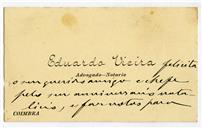 Eduardo Vieira felicita
Advogado-Notario
o seu querido amigo e chefe
pelo seu anniversario nata
licio, e faz votos para
COIMBRA